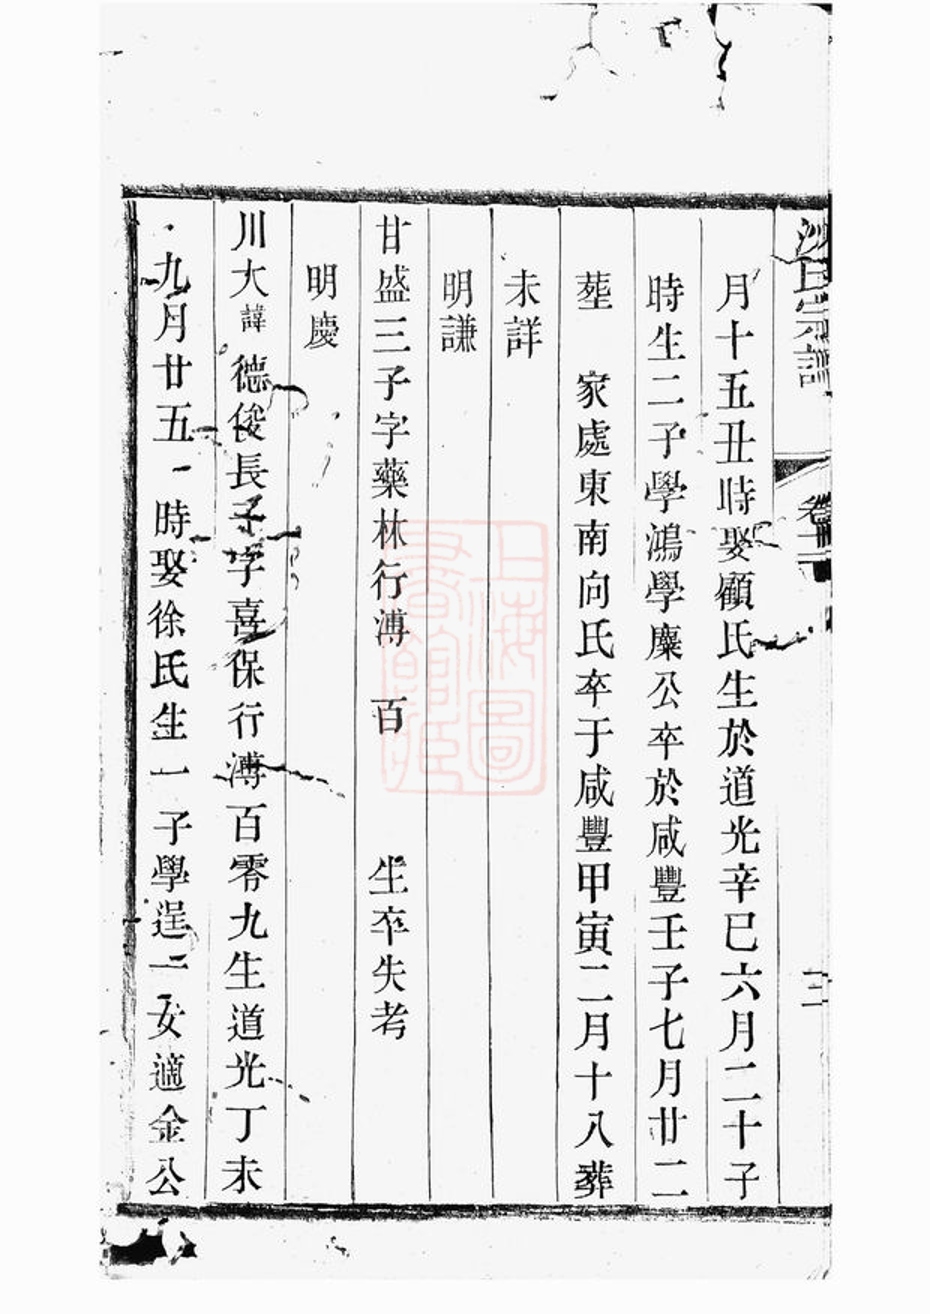 沙氏宗譜 卷十二 三
月十五丑時娶顧氏生於道光辛巳六月二十子
時生二子學鴻學麋公卒於咸豐壬子七月廿二
塟 家處東南向氏卒于咸豐甲寅二月十八葬
未詳
明謙
甘盛三子字藥林行溥 百 生卒失考
明慶
川大諱德俊長子字喜保行溥百零九生道光丁未
九月廿五 時娶徐氏生一子學逞二女適金公
上海圖書館藏